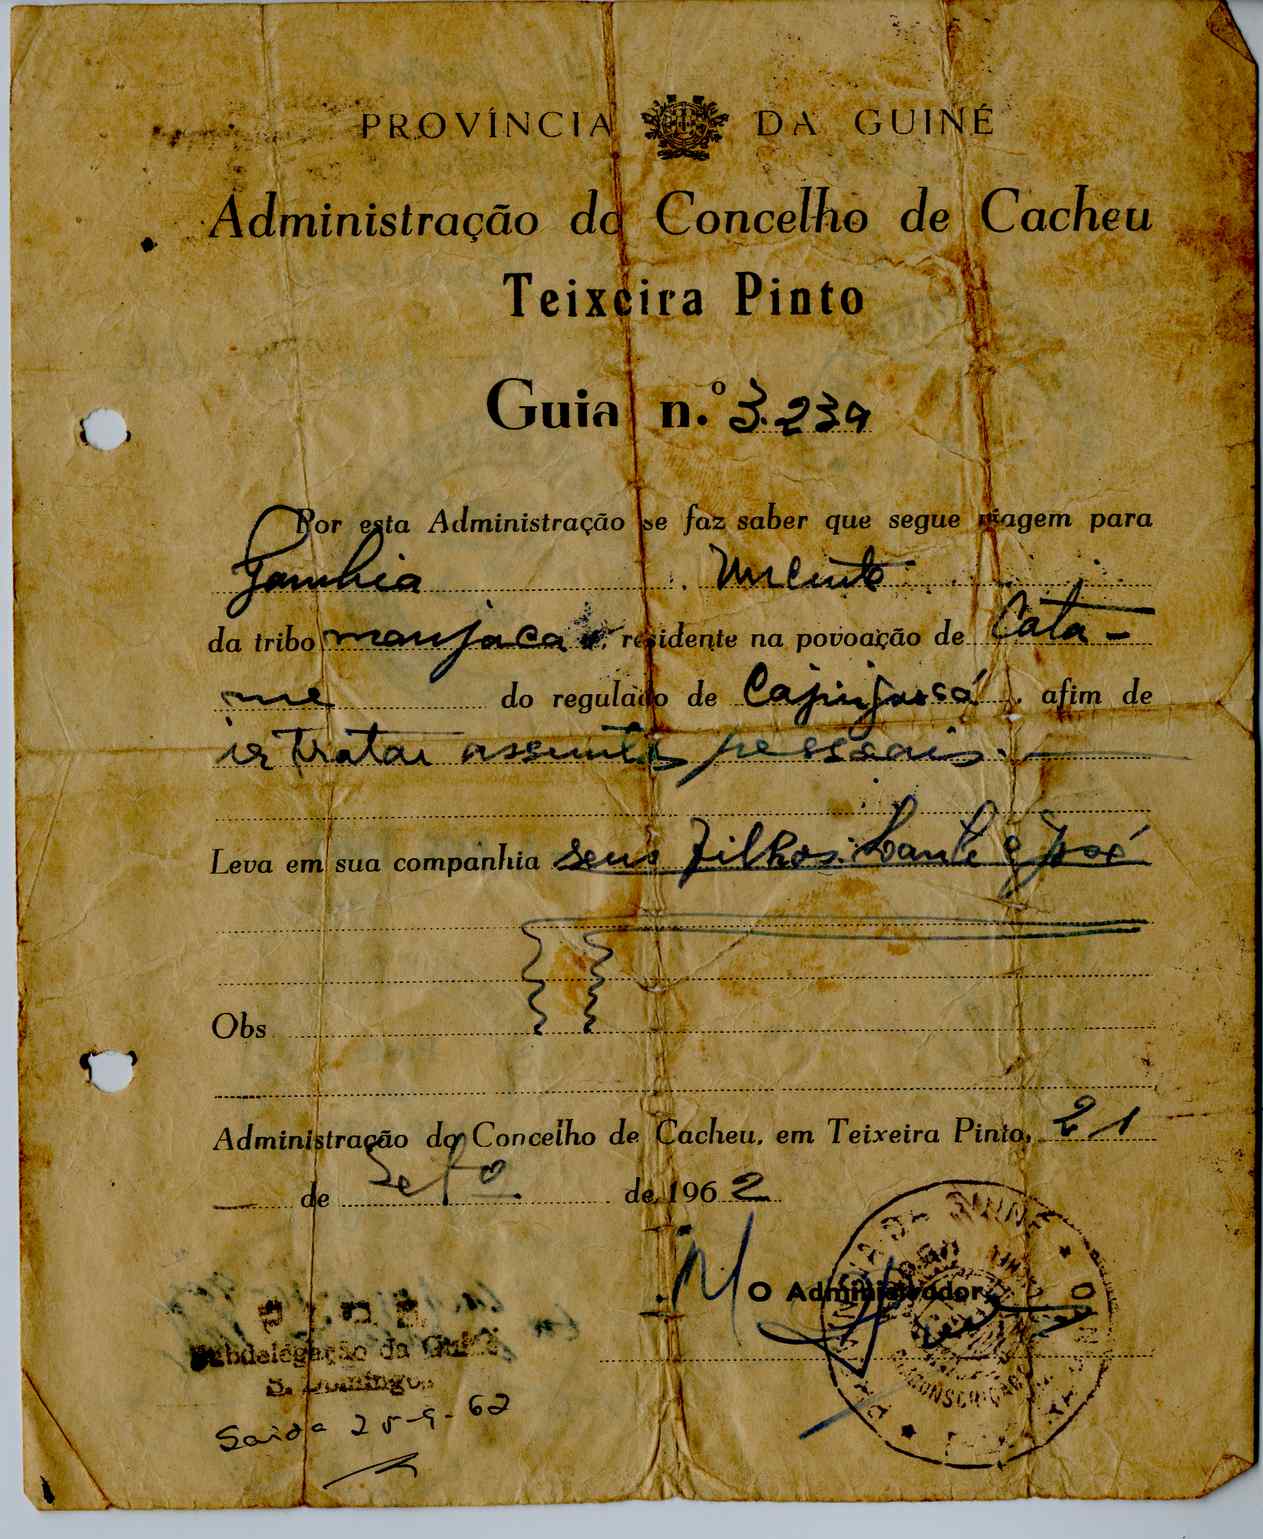 PROVÍNCIA DA GUINÉ
Administração do Concelho de Cacheu
Teixeira Pinto
Guia n.º 3.239
Por esta Administração se faz saber que segue viagem para
Gambia Vicente
da tribo manjaca residente na povoação de Cata-
me do regulado de afim de
ir tratar assuntos pessoais.
Leva em sua companhia seus filhos e José
Obs
Administração do Concelho de Cacheu, em Teixeira Pinto, 21
de Setº de 1962
O Administrador,
P. I. D. E.
Subdelegação da Guiné
S. Domingos
Saida 25-9-62